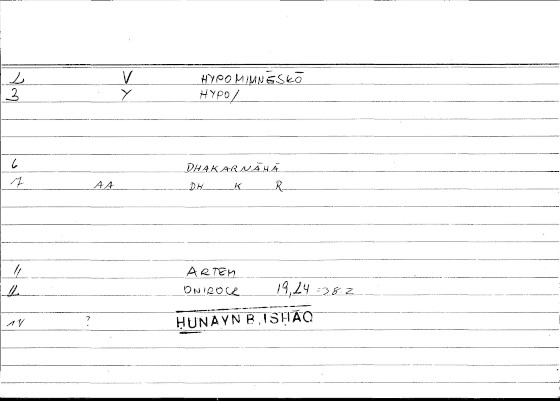 2 V HYPOMIMNĒSKŌ
3 Y HYPO/
6 DHAKARNĀHĀ
7 AA DH K R
11 ARTEM
12 ONIROCR 19,24 => 8 2
14 ? ḤUNAYN B. ISḤĀQ